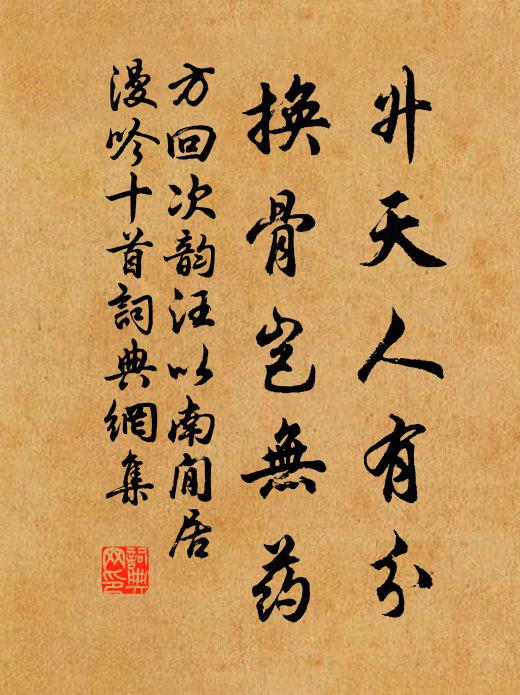 升天人有分
换骨岂無药
方回次韵汪以南闲居
漫吟十首詞典網集
詞典
网印